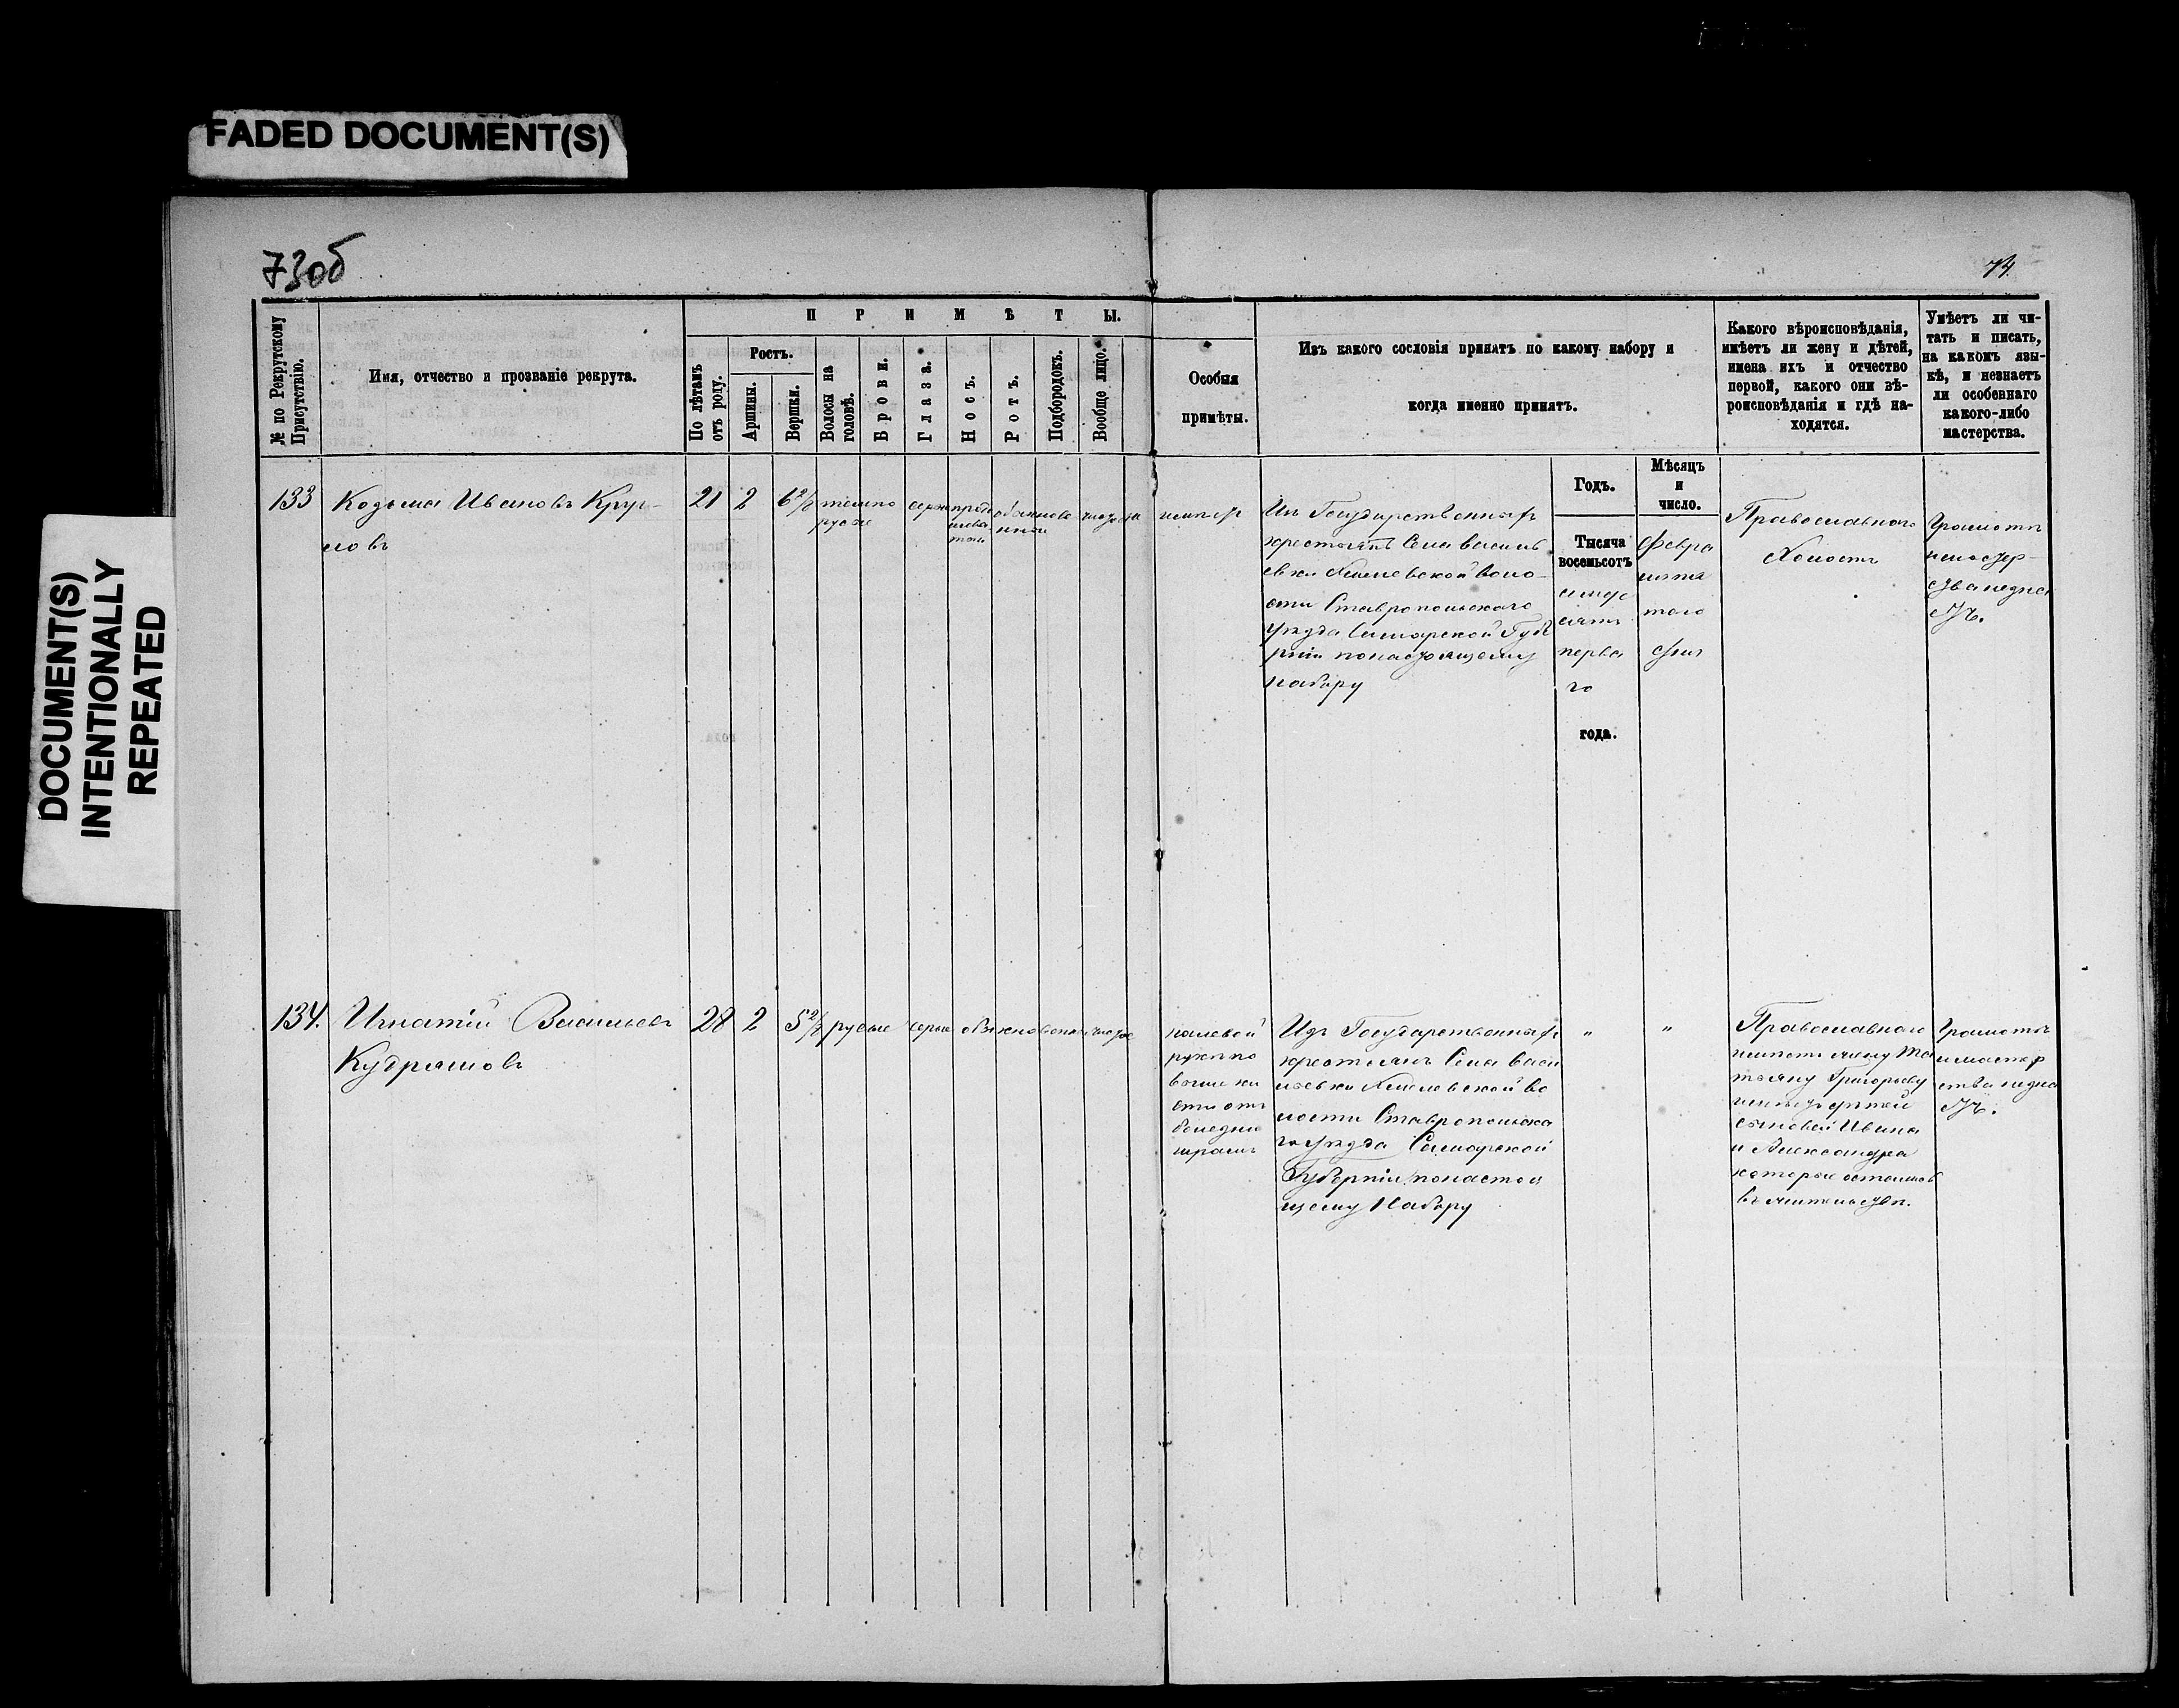 FADED DOCUMENT(S)
DOCUMENT(S)
INTENTIONALLY
REPEATED
73об
74
№ по Рекрутскому
Присутствію.
Имя, отчество и прозваніе рекрута.
П Р И М Ѣ Т Ы.
По лѣтамъ
отъ роду.
Ростъ.
Аршины.
Вершки.
Волосы на
головѣ.
Брови.
Глаза.
Носъ.
Ротъ.
Подбородокъ.
Вообще лицо.
Особыя
примѣты.
Изъ какого сословія принятъ по какому набору и
когда именно принятъ.
Какого вѣроисповѣданія,
имѣетъ ли жену и дѣтей,
имена ихъ и отчество
первой, какого они вѣ-
роисповѣданія и гдѣ на-
ходятся.
Умѣетъ ли чи-
тать и писать,
на какомъ язы-
кѣ, и незнаетъ
ли особеннаго
какого-либо
мастерства.
Годъ.
Мѣсяцъ
и
число.
133
Козьма Ивановъ Круг-
ловъ
21
2
6 2/8
темно
русые
обыкнове
нный
чистое
Изъ Государственныхъ
крестьянъ Села Василь
евки Хмелевской воло-
сти Ставропольскаго
уѣзда Самарской Губе
рніи понастоящему
набору
Тысяча
восемьсотъ
семде
сятъ
перва
го
года.
Февра
ля
того
дня
Православнаго
Холостъ
Грамотѣ
незна
етъ.
134.
Игнатій Васильевъ
Кудряшовъ
28
2
5 2/8
русые
серые
обыкновенный
чистое
налевой
рукѣ по
выше ки
сти отъ
болезни
шрамъ
Изъ Государственныхъ
крестьянъ Села Васи
льевки Хмелевской во
лости Ставропольска
го уѣзда Самарской
Губерніи понастоя
щему Набору
"
"
Православнаго
имѣетъ жену Та
тьяну Григорьеву
дѣтей
сыновей Ивана
и Александра
которые остались
въ жительстве.
Грамотѣ
и мастер
ства незна
етъ.